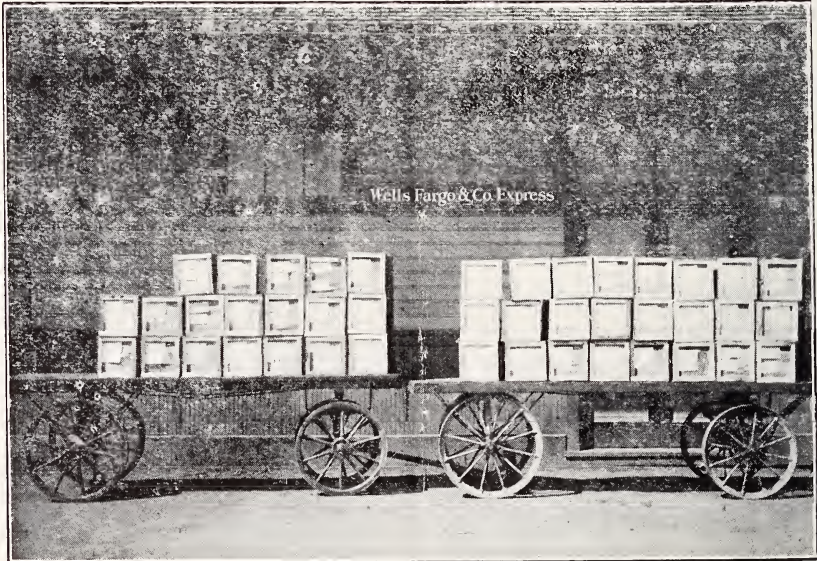 Wells Fargo & Co. Express